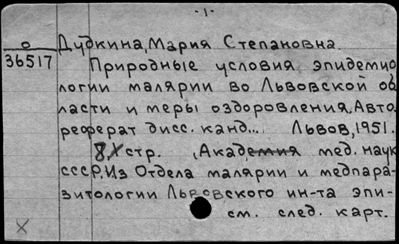 -1-
О
36517
Дудкина, Мария Степановна.
Природные условия эпидемио
логии малярии во Львовской об
ласти и меры оздоровления. Авто
реферат дисс. канд... Львов, 1951.
8 стр. (Академия мед. наук
СССР. Из Отдела малярии и медпара-
зитологии Львовского ин-та эпи-
см. след. карт.
X